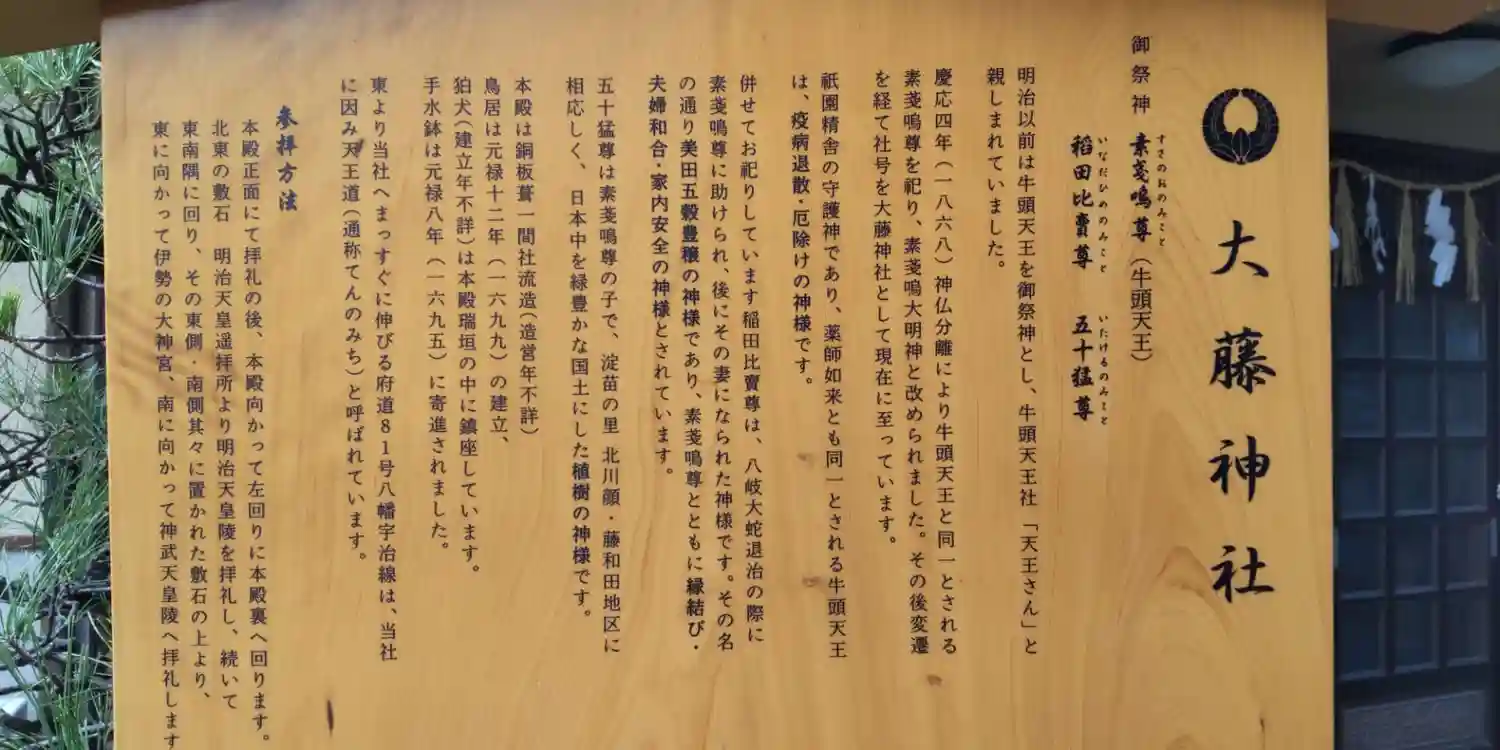 大藤神社
御祭神 素戔嗚尊(牛頭天王)
すさのおのみこと
稲田比賣尊 五十猛尊
いなだひめのみこと いたけるのみこと
明治以前は牛頭天王を御祭神とし、牛頭天王社「天王さん」と
親しまれていました。
慶応四年(一八六八)神仏分離により牛頭天王と同一とされる
素戔嗚尊を祀り、素戔嗚大明神と改められました。その後変遷
を経て社号を大藤神社として現在に至っています。
祇園精舎の守護神であり、薬師如来とも同一とされる牛頭天王
は、疫病退散・厄除けの神様です。
併せてお祀りしています稲田比賣尊は、八岐大蛇退治の際に
素戔嗚尊に助けられ、後にその妻になられた神様です。その名
の通り美田五穀豊穣の神様であり、素戔嗚尊とともに縁結び・
夫婦和合・家内安全の神様とされています。
五十猛尊は素戔嗚尊の子で、淀苗の里 北川顔・藤和田地区に
相応しく、日本中を緑豊かな国土にした植樹の神様です。
本殿は銅板葺一間社流造(造営年不詳)
鳥居は元禄十二年(一六九九)の建立、
狛犬(建立年不詳)は本殿瑞垣の中に鎮座しています。
手水鉢は元禄八年(一六九五)に寄進されました。
東より当社へまっすぐに伸びる府道81号八幡宇治線は、当社
に因み天王道(通称てんのみち)と呼ばれています。
参拝方法
本殿正面にて拝礼の後、本殿向かって左回りに本殿裏へ回ります。
北東の敷石 明治天皇遥拝所より明治天皇陵を拝礼し、続いて
東南隅に回り、その東側・南側其々に置かれた敷石の上より、
東に向かって伊勢の大神宮、南に向かって神武天皇陵へ拝礼します